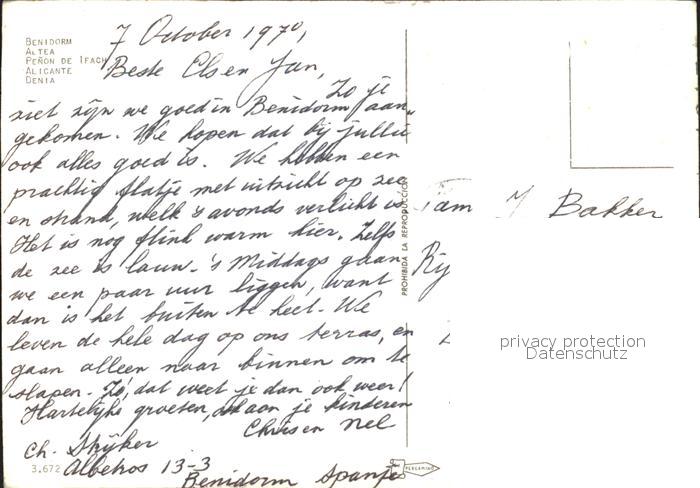 BENIDORM
ALTEA
PEÑON DE IFACH
ALICANTE
DENIA
7 October 1970,
Beste Els en Jan,
Zo je
ziet zijn we goed in Benidorm aan-
gekomen. We hopen dat bij jullie
ook alles goed is. We hebben een
prachtig flatje met uitzicht op zee
en strand, welk 's avonds verlicht is.
Het is nog flink warm hier. Zelfs
de zee is lauw. 's Middags gaan
we een paar uur liggen, want
dan is het buiten te heet. We
leven de hele dag op ons terras, en
gaan alleen naar binnen om te
slapen. Zo, dat weet je dan ook weer!
Hartelijke groeten, ook aan je kinderen
Chris en Nel
Ch. Strijker
Albatros 13-3
Benidorm Spanje
3.672
PROHIBIDA LA REPRODUCCION
PERGAMINO
Fam J Bakker
Rij
privacy protection
Datenschutz